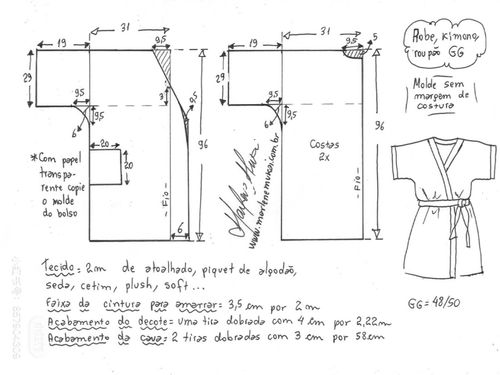 31
31
19
9,5
19
9,5
5
Robe, Kimono,
roupão GG
Molde sem
margem de
costura
29
29
31
9,5
9,5
9,5
9,5
9,5
6
6
96
96
Costas
2x
* Com papel
transpa-
rente copie
o molde
do bolso
20
20
Fio
Fio
6
www.marlenemukai.com.br
Tecido: 2m de atoalhado, piquet de algodão,
seda, cetim, plush, soft...
Faixa da cintura para amarrar: 3,5 cm por 2m
Acabamento do decote = uma tira dobrada com 4 cm por 2,22m
Acabamento da cava: 2 tiras dobradas com 3 cm por 58cm
GG = 48/50